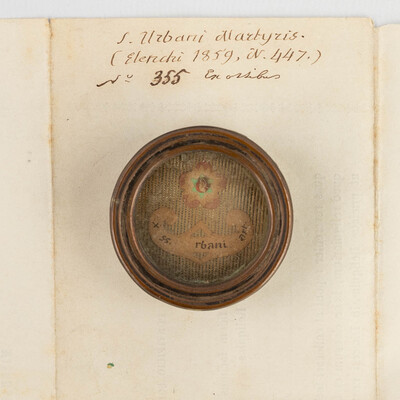 S. Urbani Martyris.
(Elenchi 1859, N. 447.)
No 355 Ex ossibus
rbani